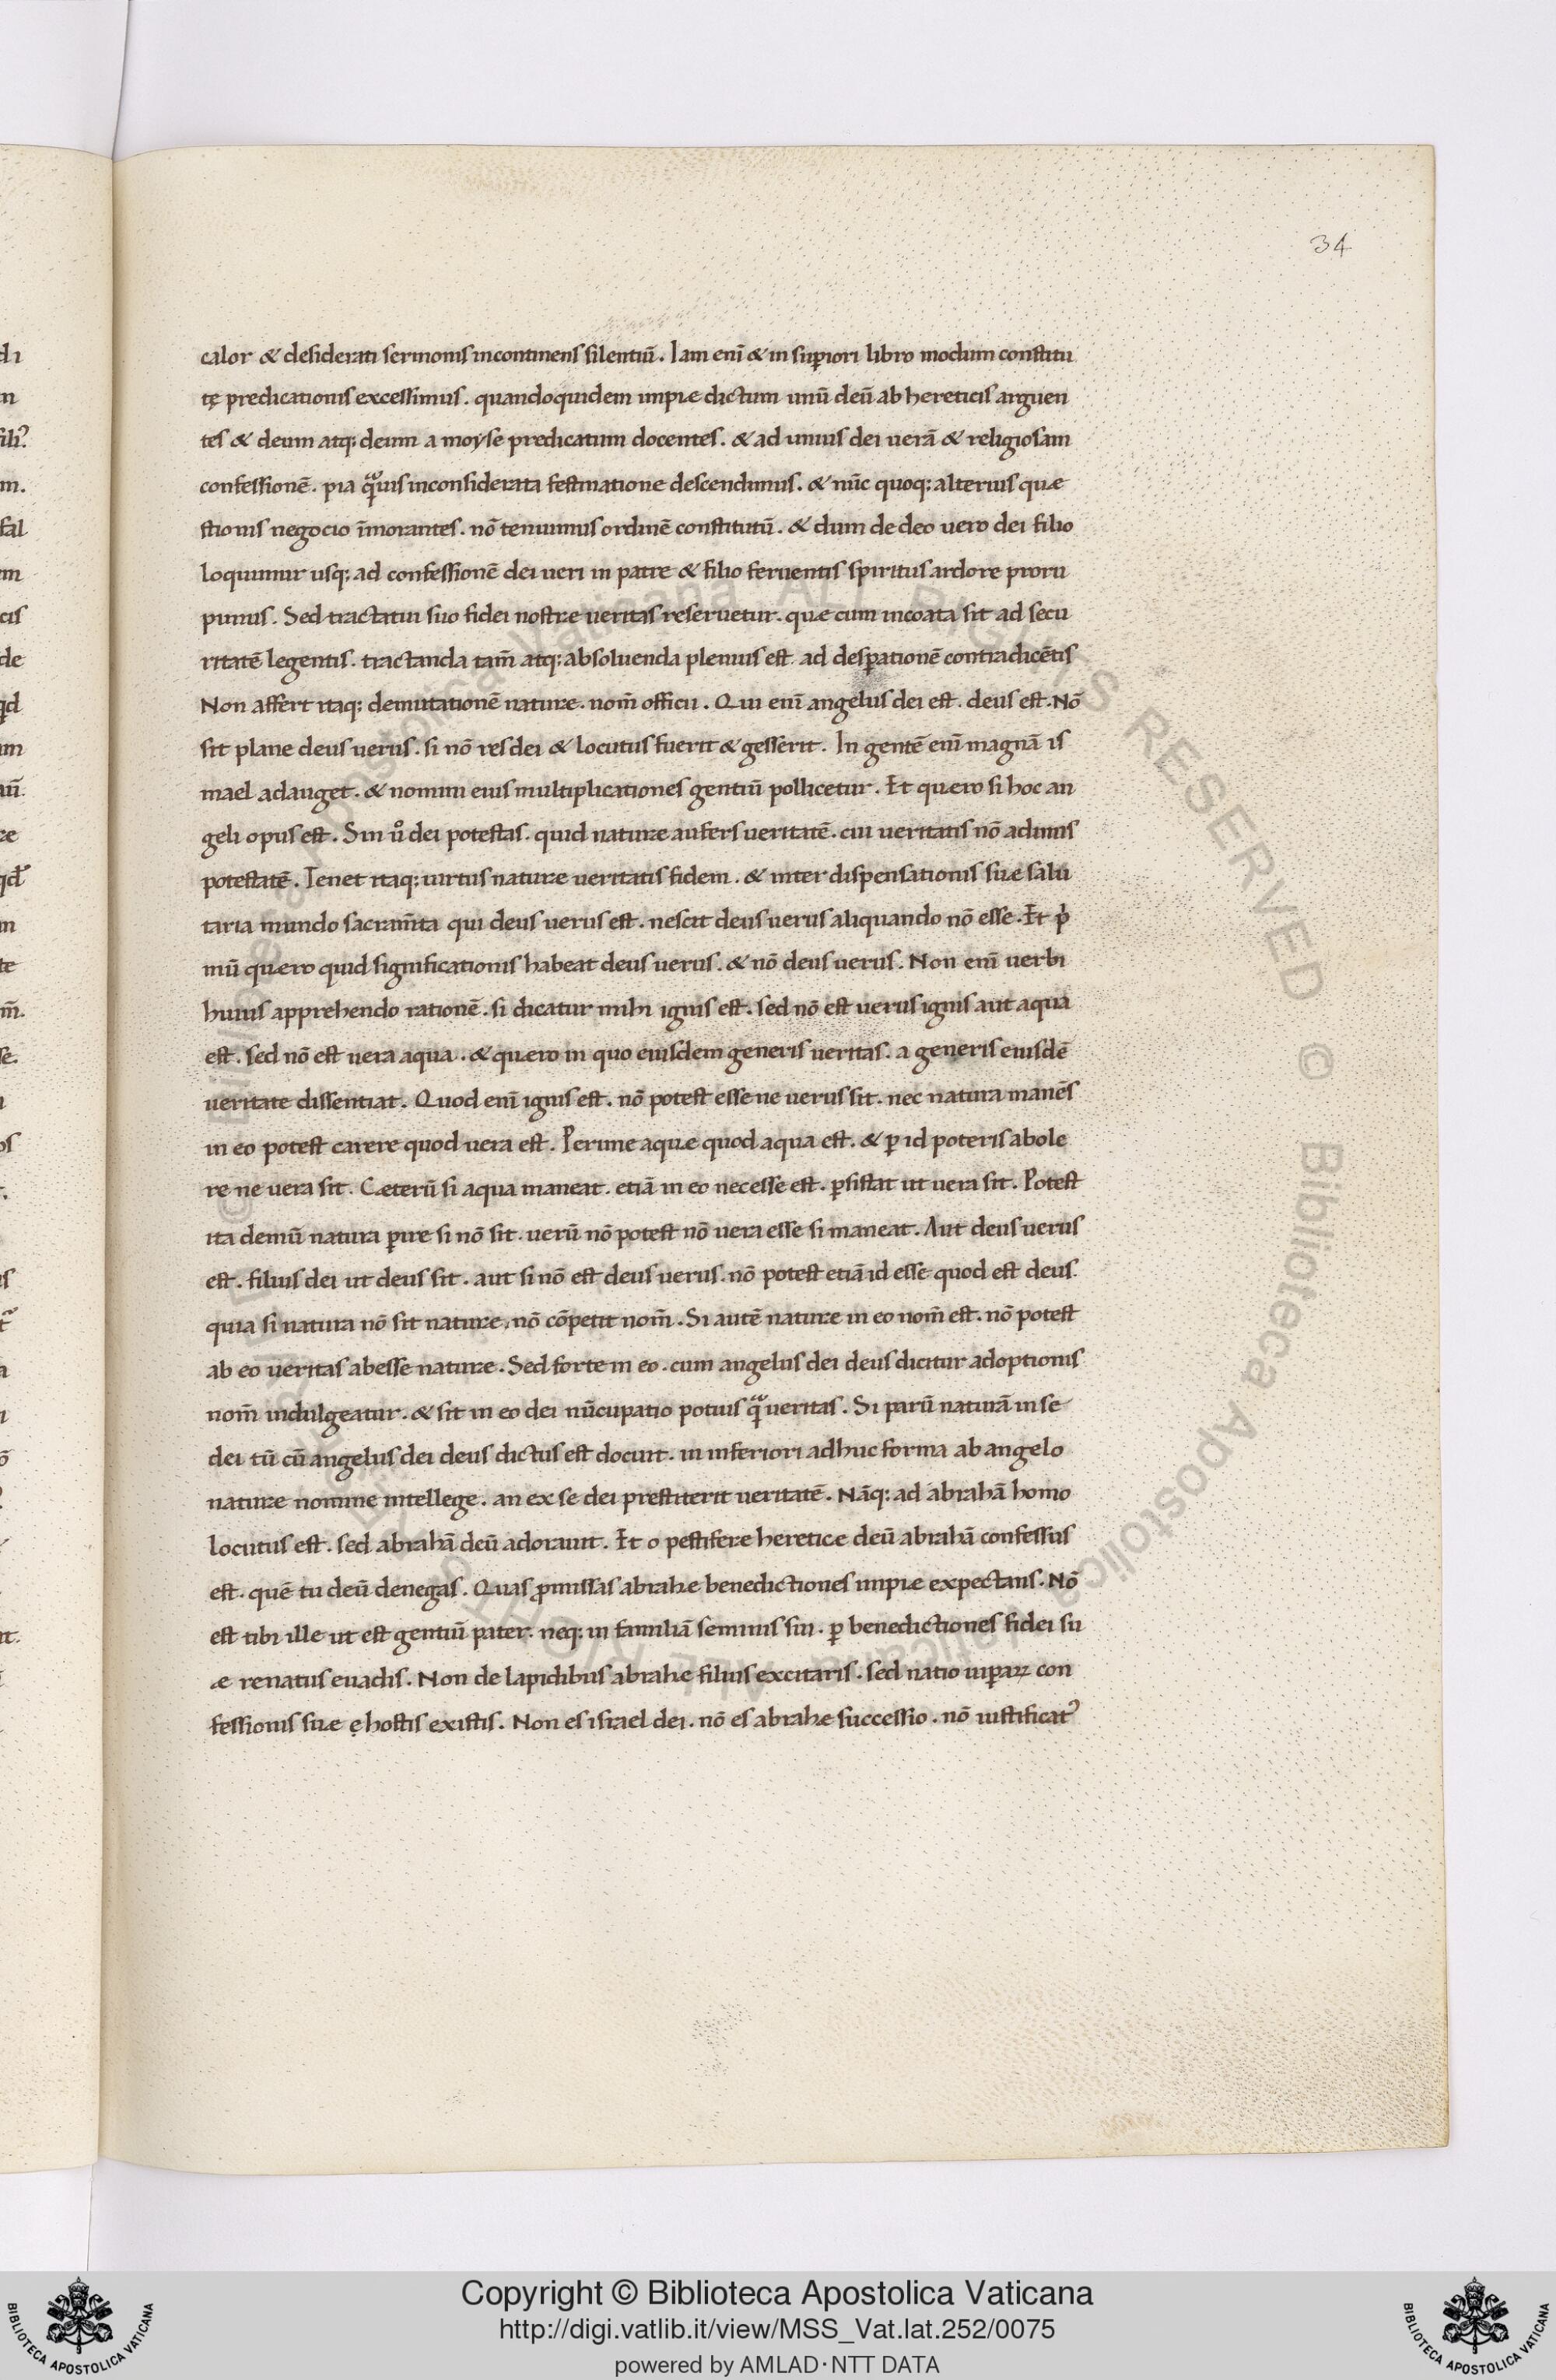 34
calor & desiderati sermonis incontinens silentiū. Iam enī & in supiori libro modum constitu
tę predicationis excessimus. quandoquidem impie dictum unū deū ab hereticis arguen
tes & deum atq; deum a moyse predicatum docentes. & ad unius dei uerā & religiosam
confessionē. pia quis inconsiderata festinatione descendimus. & nūc quoq; alterius quæ
stionis negocio īmorantes. nō tenuimus ordinē constitutū. & dum de deo uero dei filio
loquimur usq; ad confessionē dei ueri in patre & filio feruentis spiritus ardore proru
pimus. Sed tractatui suo fidei nostræ ueritas reseruetur. quæ cum incoata sit ad secu
ritatē legentis. tractanda tam̄ atq; absoluenda plenius est. ad despationē contradicētis
Non affert itaq; demutationē naturæ. nom̄ officii. Qui enī angelus dei est. deus est. Nō
sit plane deus uerus. si nō res dei & locutus fuerit & gesserit. In gentē enī magnā is
mael adauget. & nomini eius multiplicationes gentiū pollicetur. Et quæro si hoc an
geli opus est. Sin ůo dei potestas. quid naturæ aufers ueritatē. cui ueritatis nō adimis
potestatē. Tenet itaq; uirtus naturæ ueritatis fidem. & inter dispensationis suæ salu
taria mundo sacram̄ta qui deus uerus est. nescit deus uerus aliquando nō esse. Et pi
mū quæro quid significationis habeat deus uerus. & nō deus uerus. Non enī uerbi
huius apprehendo rationē. si dicatur mihi ignis est. sed nō est uerus ignis aut aqua
est. sed nō est uera aqua. & quæro in quo eiusdem generis ueritas. a generis eiusdē
ueritate dissentiat. Quod enī ignis est. nō potest esse ne uerus sit. nec natura manēs
in eo potest carere quod uera est. Perime aquæ quod aqua est. & p id poteris abole
re ne uera sit. Cæterū si aqua maneat. etiā in eo necesse est. psistat ut uera sit. Potest
ita demū natura pire si nō sit. uerū nō potest nō uera esse si maneat. Aut deus uerus
est. filius dei ut deus sit. aut si nō est deus uerus. nō potest etiā id esse quod est deus.
quia si natura nō sit naturæ. nō cōpetit nom̄. Si autē naturæ in eo nom̄ est. nō potest
ab eo ueritas abesse naturæ. Sed forte in eo. cum angelus dei deus dicitur adoptionis
nom̄ indulgeatur. & sit in eo dei nūcupatio potius q ueritas. Si parū naturā in se
dei tū cū angelus dei deus dictus est docuit. in inferiori adhuc forma ab angelo
naturæ nomine intellege. an ex se dei prestiterit ueritatē. Nāq; ad abrahā homo
locutus est. sed abrahā deū adorauit. Et o pestifere heretice deū abrahā confessus
est. quē tu deū denegas. Quas pmissas abrahæ benedictiones impie expectans. Nō
est tibi ille ut est gentiū pater. neq; in familiā seminis sui. p benedictiones fidei su
æ renatus euadis. Non de lapidibus abrahæ filius excitaris. sed natio uiparꝝ con
fessionis suæ ę hostis existis. Non es israel dei. nō es abrahæ successio. nō iustificat
Copyright © Biblioteca Apostolica Vaticana
http://digi.vatlib.it/view/MSS_Vat.lat.252/0075
powered by AMLAD·NTT DATA
BIBLIOTECA APOSTOLICA VATICANA
BIBLIOTECA APOSTOLICA VATICANA